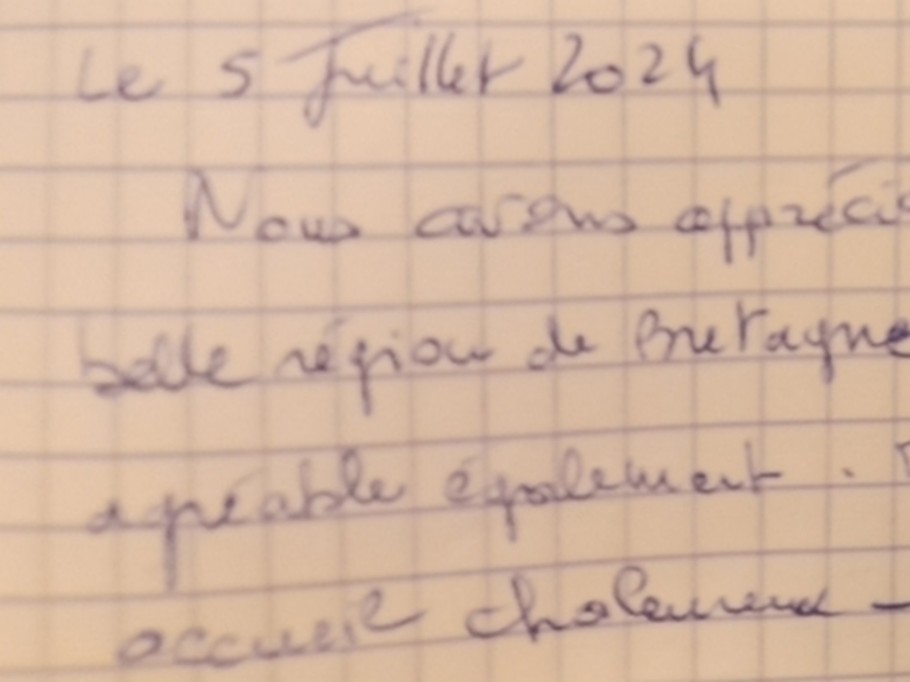 Le 5 Juillet 2024
Nous avons apprécié
belle région de Bretagne
agréable également.
accueil chaleureux -